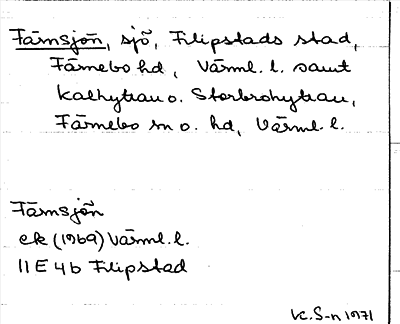 Färnsjön, sjö, Filipstads stad,
Färnebo hd, Värml. l. samt
Kalhyttan o. Storbrohyttan,
Färnebo sn o. hd, Värml. l.
Färnsjön
ek (1969) Värml. l.
11 E 4 b Filipstad
VC. S-n 1971